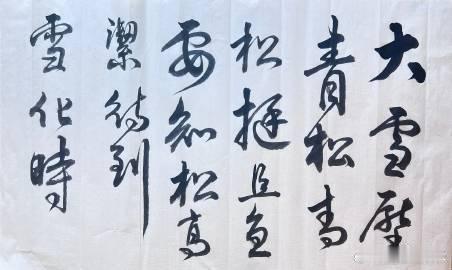 大雪壓
青松青
松挺且直
要知松高
潔待到
雪化時